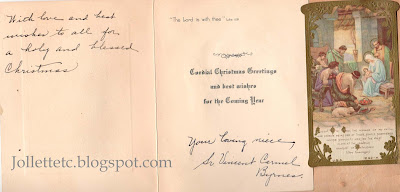 With love and best
wishes to all for
a holy and blessed
Christmas
"The Lord is with thee"
Cordial Christmas Greetings
and best wishes
for the Coming Year
Your loving niece,
Sr. Vincent Carmel
Byrnes.
Jollettetc.blogspot.com